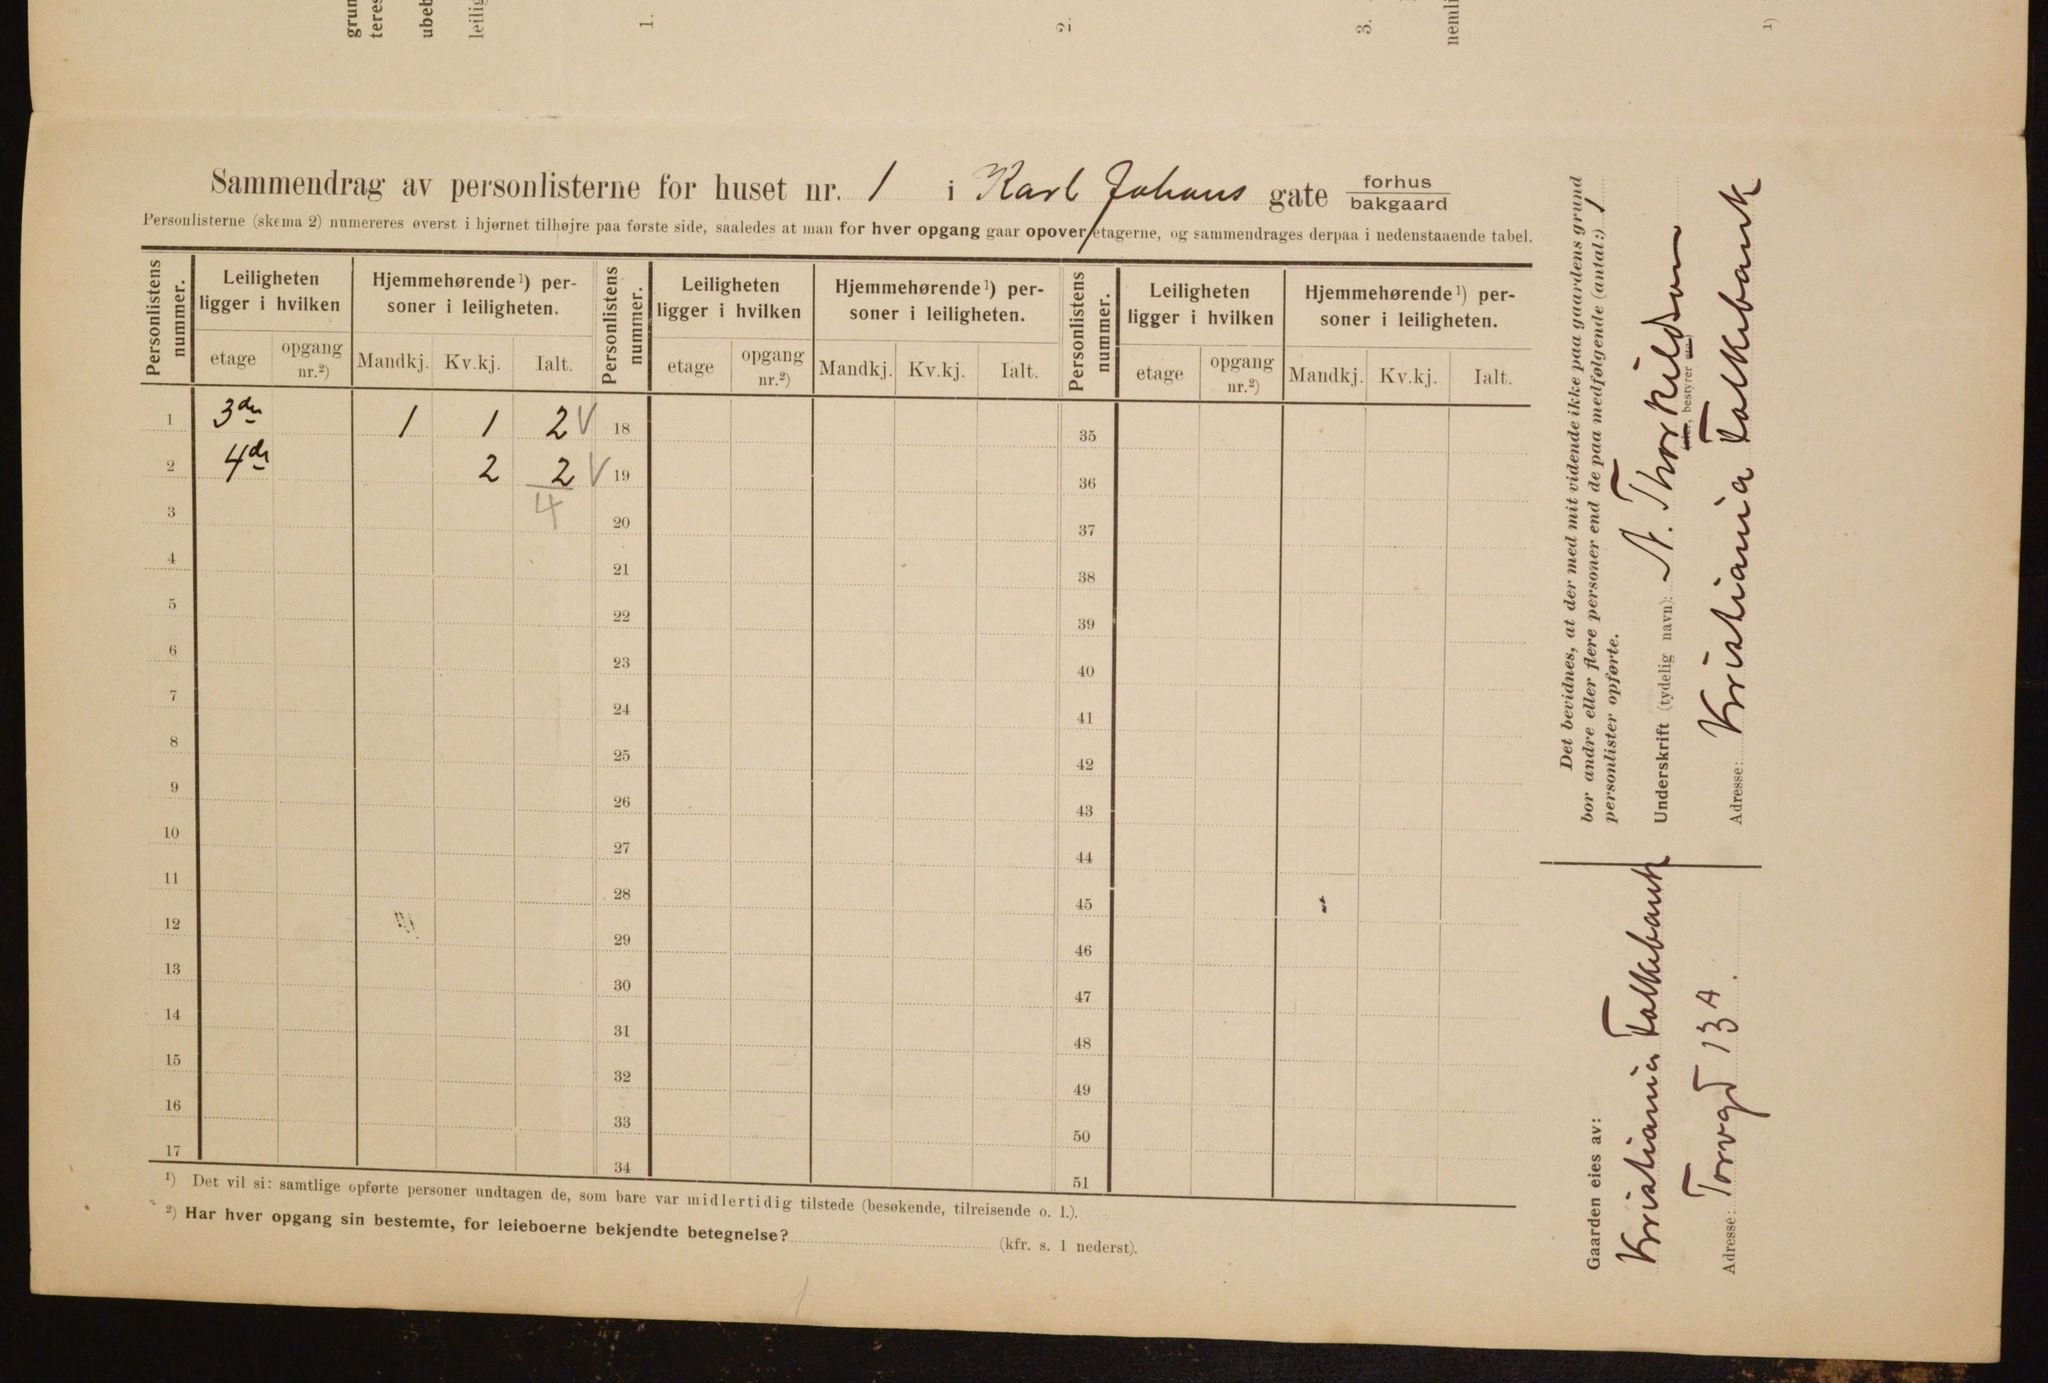 grun
teres
ubeb
leilig
1.
2.
3.
nemli
1)
Sammendrag av personlisterne for huset nr. 1 i Karl Johans gate forhus
bakgaard
Personlisterne (skema 2) numereres øverst i hjørnet tilhøjre paa første side, saaledes at man for hver opgang gaar opover etagerne, og sammendrages derpaa i nedenstaaende tabel.
Personlistens nummer. Leiligheten ligger i hvilken Hjemmehørende 1) personer i leiligheten. Personlistens nummer. Leiligheten ligger i hvilken Hjemmehørende 1) personer i leiligheten. Personlistens nummer. Leiligheten ligger i hvilken Hjemmehørende 1) personer i leiligheten.
etage opgang nr.2) Mandkj. Kv.kj. Ialt. etage opgang nr.2) Mandkj. Kv.kj. Ialt. etage opgang nr.2) Mandkj. Kv.kj. Ialt.
1 3de 1 1 2 V 18 35
2 4de 2 2 V 19 36
3 4 20 37
4 21 38
5 22 39
6 23 40
7 24 41
8 25 42
9 26 43
10 27 44
11 28 45
12 29 46
13 30 47
14 31 48
15 32 49
16 33 50
17 34 51
1) Det vil si: samtlige opførte personer undtagen de, som bare var midlertidig tilstede (besøkende, tilreisende o. l.).
2) Har hver opgang sin bestemte, for leieboerne bekjendte betegnelse? (kfr. s. 1 nederst).
Det bevidnes, at der med mit vidende ikke paa gaardens grund
bor andre eller flere personer end de paa medfølgende (antal:) 1
personlister opførte.
Underskrift (tydelig navn): N. Thorkildsen
bestyrer
Adresse: Kristiania Folkebank
Gaarden eies av:
Kristiania Folkebank
Adresse: Torvgd 13 A.